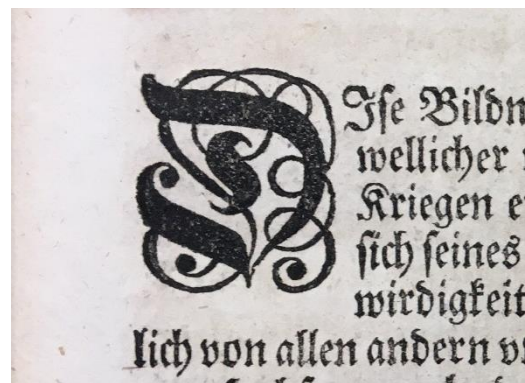 DIſe Bildn
wellicher
Kriegen e
ſich ſeines
wirdigkeit
lich von allen andern v